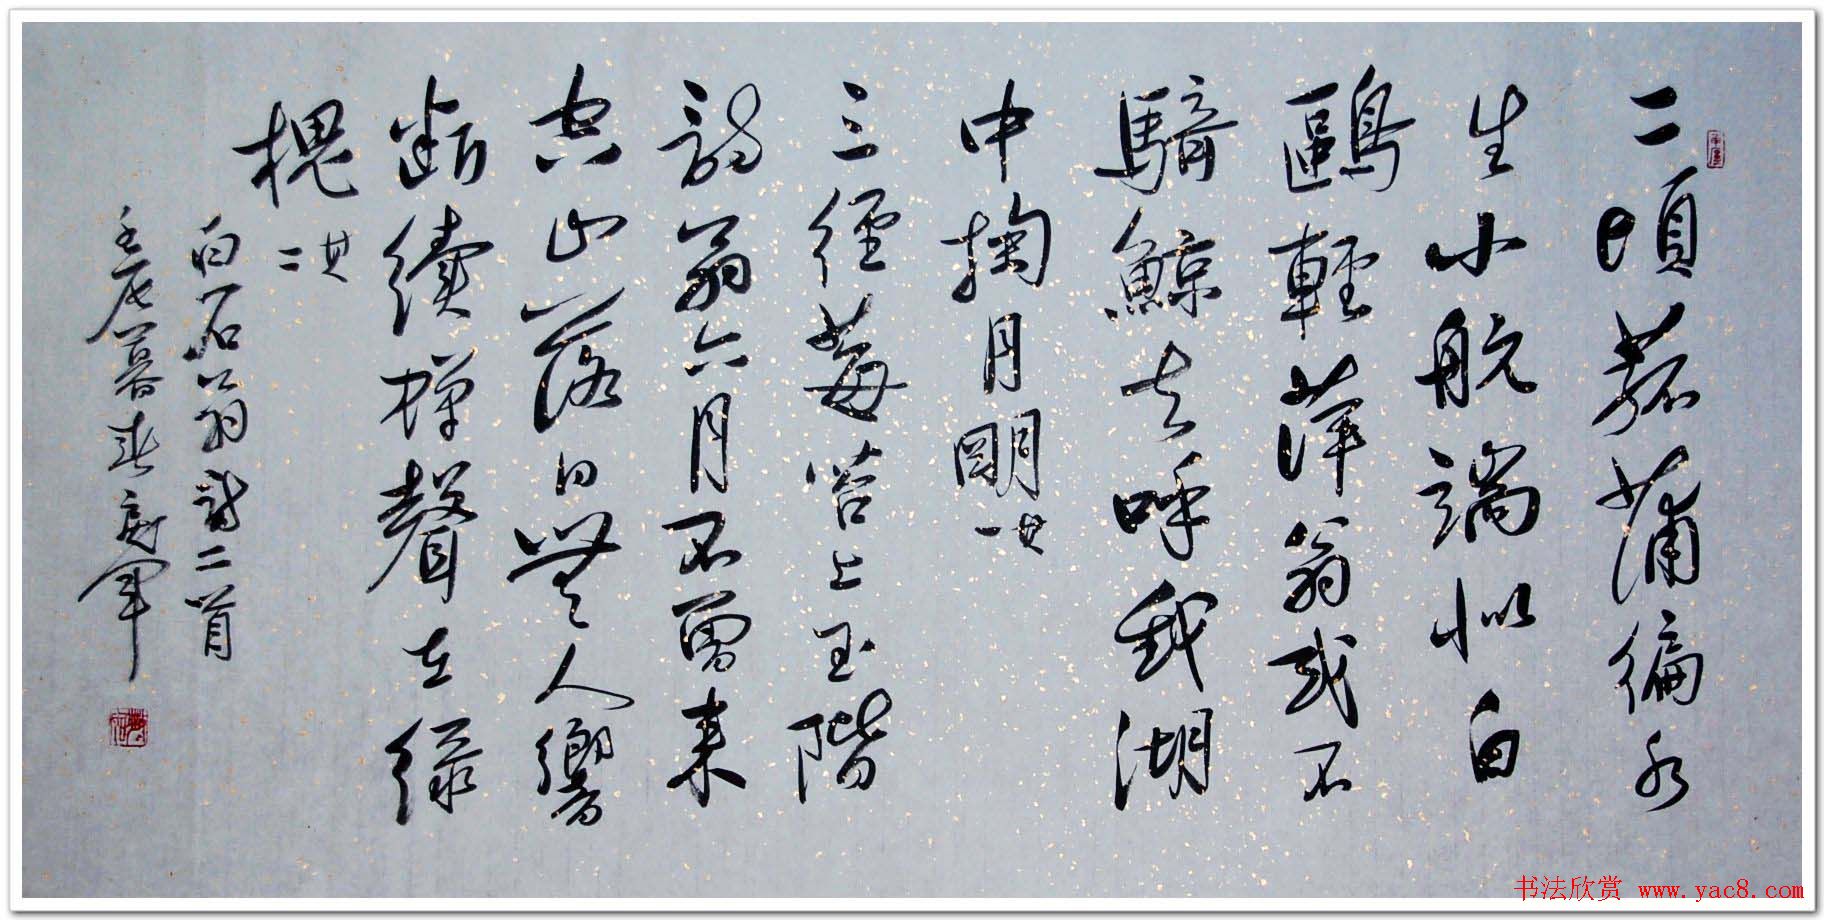 二頃菰蒲徧水
生小航端似白
鷗輕萍翁或不
騎鯨去呼我湖
中掬月明 其一
三徑莓苔上玉階
詩翁六月不曾来
空山落日無人響
断續蟬聲在緑
槐 其二
白石翁詩二首
壬辰暮春
书法欣赏 www.yac8.com